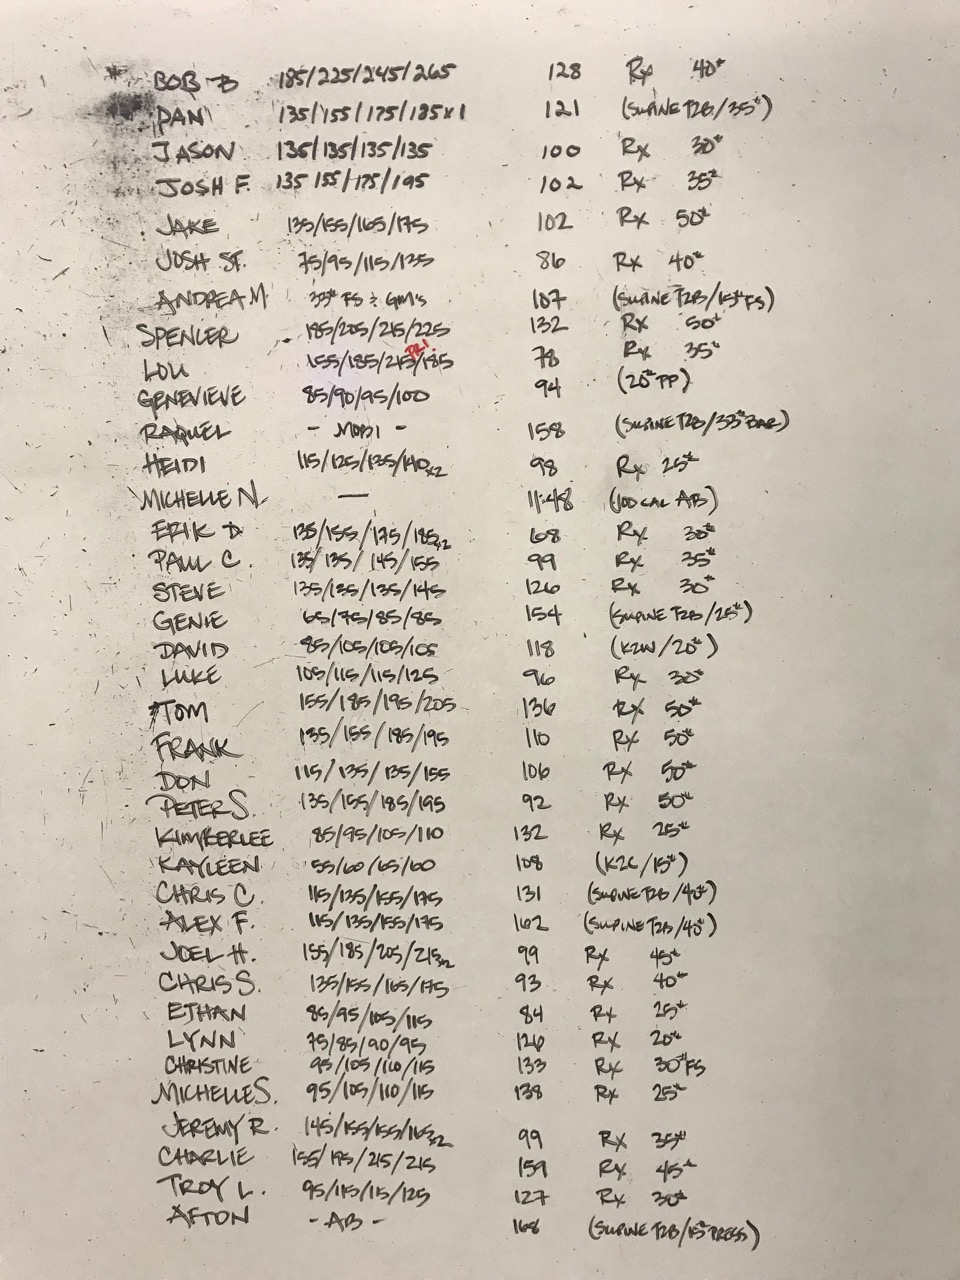 BOB B 185/225/245/265 128 Rx 40#
DAN 135/155/175/185x1 121 (SUPINE T2B/35#)
JASON 135/135/135/135 100 Rx 30#
JOSH F. 135 155/175/195 102 Rx 35#
JAKE 135/155/165/175 102 Rx 50#
JOSH ST. 75/95/115/135 86 Rx 40#
ANDREA M 33# FS & GM'S 107 (SUPINE T2B/15# FS)
SPENCER 185/205/215/225 132 Rx 50#
LOU 155/185/215/185 PR! 78 Rx 35#
GENEVIEVE 85/90/95/100 94 (20# PP)
RAQUEL - MODI - 158 (SUPINE T2B/33# BAR)
HEIDI 115/125/135/140x2 98 Rx 25#
MICHELLE N. — 11:48 (100 CAL AB)
ERIK D 135/155/175/185x2 68 Rx 30#
PAUL C. 135/135/145/155 99 Rx 35#
STEVE 135/135/135/145 126 Rx 30#
GENIE 65/75/85/85 154 (SUPINE T2B/25#)
DAVID 85/105/105/105 118 (K2W/20#)
LUKE 105/115/115/125 96 Rx 30#
TOM 155/185/195/205 136 Rx 50#
FRANK 135/155/185/195 110 Rx 50#
DON 115/135/135/155 106 Rx 50#
PETER S. 135/155/185/195 92 Rx 50#
KIMBERLEE 85/95/105/110 132 Rx 25#
KAYLEEN 55/60/65/60 108 (K2C/15#)
CHRIS C. 115/135/155/175 131 (SUPINE T2B/40#)
ALEX F. 115/135/155/175 162 (SUPINE T2B/40#)
JOEL H. 155/185/205/215x2 99 Rx 45#
CHRIS S. 135/155/165/175 93 Rx 40#
ETHAN 85/95/105/115 84 Rx 25#
LYNN 75/85/90/95 126 Rx 20#
CHRISTINE 95/105/110/115 133 Rx 30# FS
MICHELLE S. 95/105/110/115 138 Rx 25#
JEREMY R. 145/155/155/165x2 99 Rx 35#
CHARLIE 155/195/215/215 159 Rx 45#
TROY L. 95/115/115/125 127 Rx 30#
AFTON - AB - 168 (SUPINE T2B/15# PRESS)